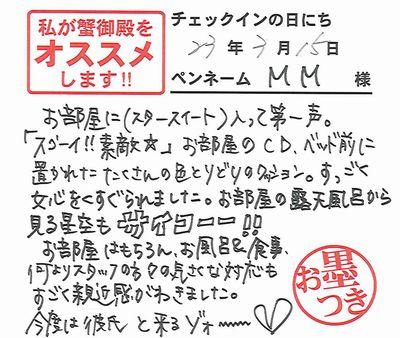 私が蟹御殿を
オススメ
します!!
チェックインの日にち
23年3月15日
ペンネーム MM 様
お部屋に(スタースイート)入って第一声。
「スゴーイ!!素敵☆」お部屋のCD、ベッド前に
置かれたたくさんの色とりどりのクッション。すっごく
女心をくすぐられました。お部屋の露天風呂から
見る星空もサイコーー!!
お部屋はもちろん、お風呂&食事、
何よりスタッフの方々の気さくな対応も
すごく親近感がわきました。
今度は彼氏と来るゾォ〜〜♡
お墨つき